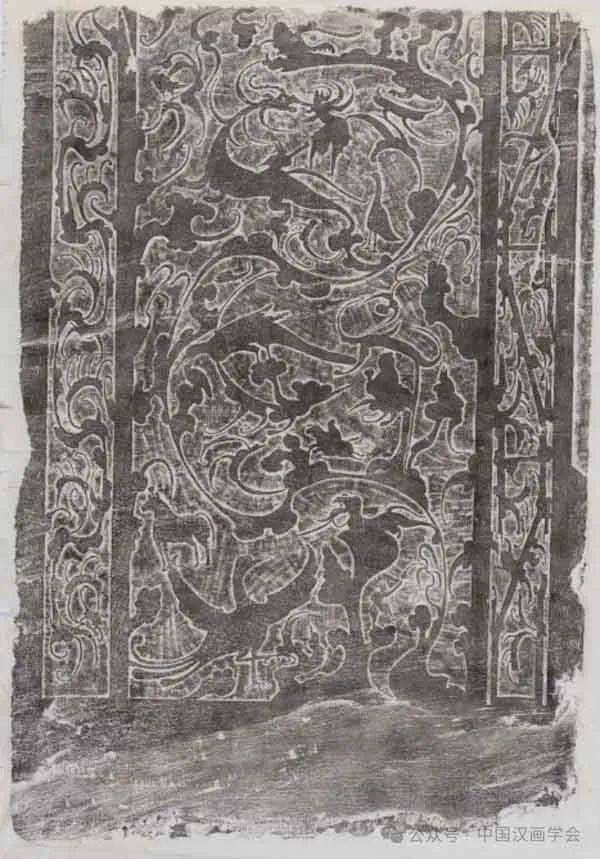 公众号·中国汉画学会